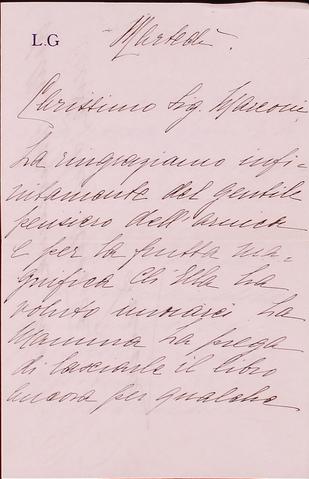 L.G
Martedì.
Carissimo Sig. Marconi,
La ringraziamo infi-
nitamente del gentile
pensiero dell'amica
e per la frutta ma-
gnifica ch'Ella ha
voluto inviarci. La
Mamma La prega
di lasciarle il libro
ancora per qualche